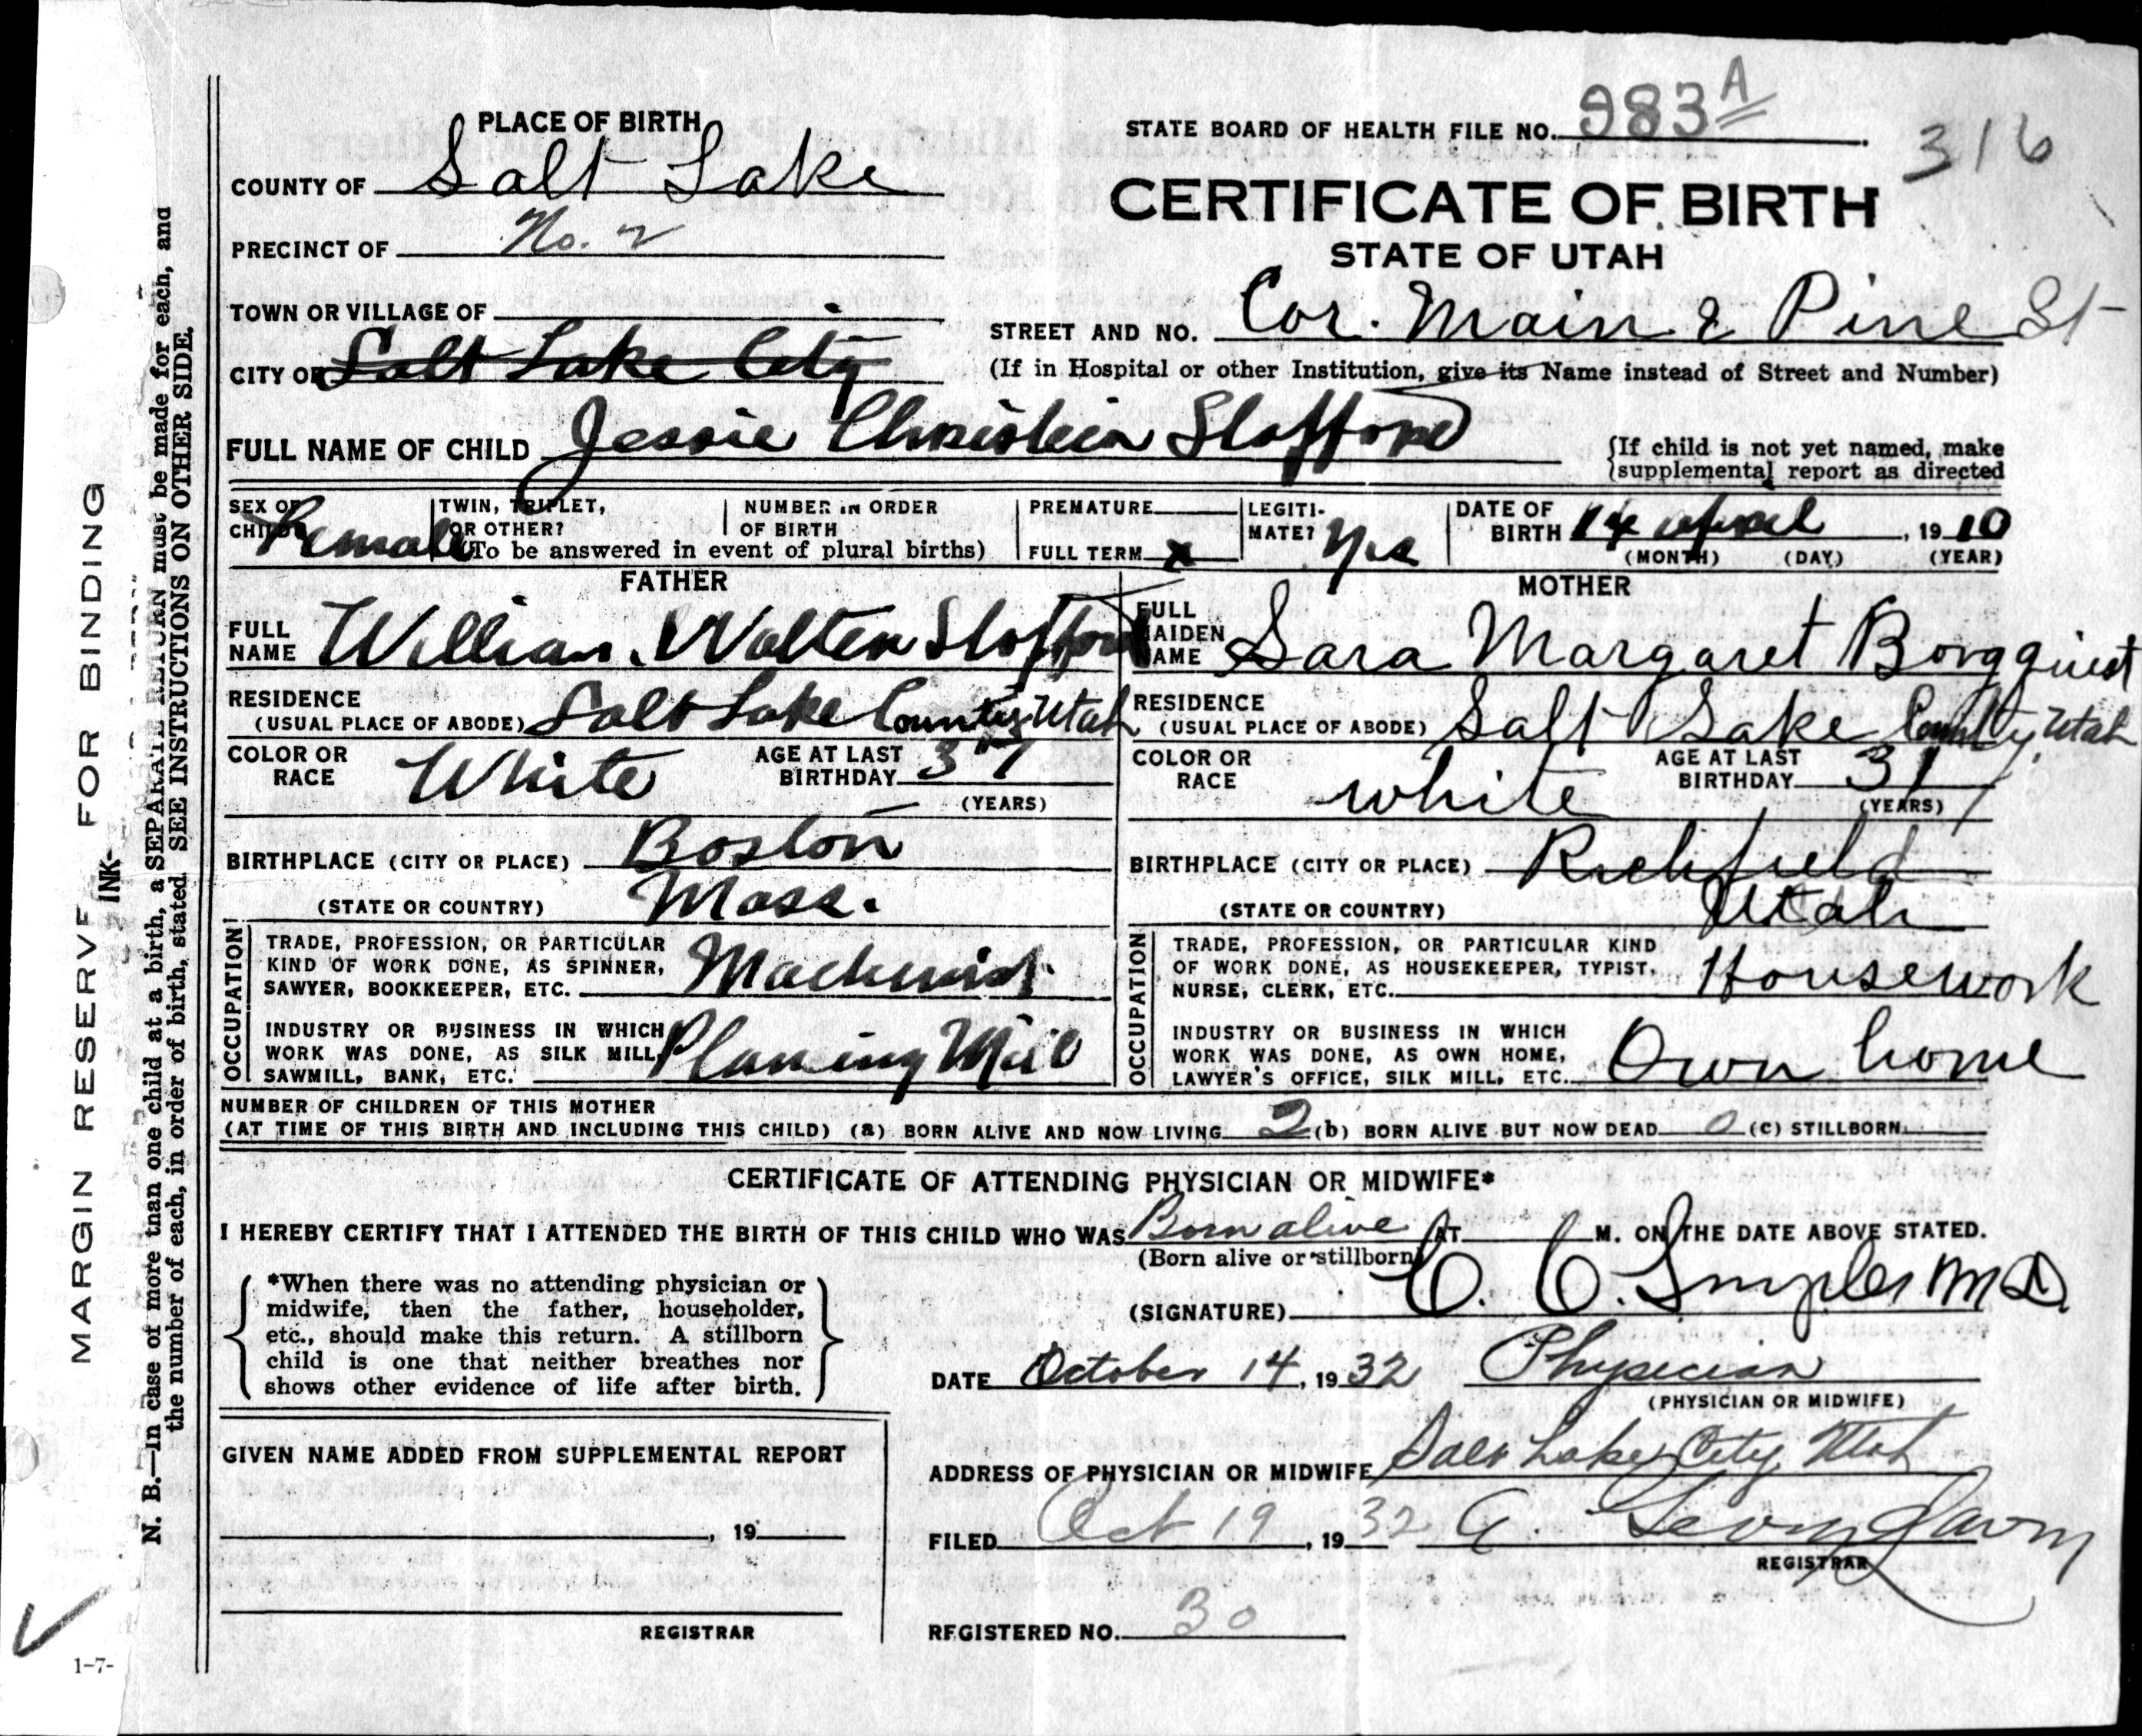 PLACE OF BIRTH
STATE BOARD OF HEALTH FILE NO. 983 A
316
COUNTY OF Salt Lake
CERTIFICATE OF BIRTH
PRECINCT OF No. 2
STATE OF UTAH
TOWN OR VILLAGE OF
STREET AND NO. Cor. Main & Pine St
CITY OF Salt Lake City
(If in Hospital or other Institution, give its Name instead of Street and Number)
FULL NAME OF CHILD Jessie
{If child is not yet named, make
{supplemental report as directed
SEX OF CHILD? Female
TWIN, TRIPLET, OR OTHER?
NUMBER IN ORDER OF BIRTH
(To be answered in event of plural births)
PREMATURE
FULL TERM x
LEGITIMATE? Yes
DATE OF BIRTH 14 april, 1910
(MONTH) (DAY) (YEAR)
FATHER
FULL NAME William Walter
RESIDENCE
(USUAL PLACE OF ABODE) Salt Lake County Utah
COLOR OR RACE White
AGE AT LAST BIRTHDAY 37
(YEARS)
BIRTHPLACE (CITY OR PLACE) Boston
(STATE OR COUNTRY) Mass.
OCCUPATION
TRADE, PROFESSION, OR PARTICULAR
KIND OF WORK DONE, AS SPINNER,
SAWYER, BOOKKEEPER, ETC. Machinist
INDUSTRY OR BUSINESS IN WHICH
WORK WAS DONE, AS SILK MILL,
SAWMILL, BANK, ETC. Planing Mill
MOTHER
FULL MAIDEN NAME Sara Margaret Borgquist
RESIDENCE
(USUAL PLACE OF ABODE) Salt Lake County, Utah
COLOR OR RACE white
AGE AT LAST BIRTHDAY 31
(YEARS)
BIRTHPLACE (CITY OR PLACE) Richfield
(STATE OR COUNTRY) Utah
OCCUPATION
TRADE, PROFESSION, OR PARTICULAR KIND
OF WORK DONE, AS HOUSEKEEPER, TYPIST,
NURSE, CLERK, ETC. Housework
INDUSTRY OR BUSINESS IN WHICH
WORK WAS DONE, AS OWN HOME,
LAWYER'S OFFICE, SILK MILL, ETC. Own home
NUMBER OF CHILDREN OF THIS MOTHER
(AT TIME OF THIS BIRTH AND INCLUDING THIS CHILD) (a) BORN ALIVE AND NOW LIVING 2 (b) BORN ALIVE BUT NOW DEAD 0 (C) STILLBORN
CERTIFICATE OF ATTENDING PHYSICIAN OR MIDWIFE*
I HEREBY CERTIFY THAT I ATTENDED THE BIRTH OF THIS CHILD WHO WAS Born alive AT M. ON THE DATE ABOVE STATED.
(Born alive or stillborn)
*When there was no attending physician or
midwife, then the father, householder,
etc., should make this return. A stillborn
child is one that neither breathes nor
shows other evidence of life after birth.
(SIGNATURE) M D
DATE October 14, 1932 Physician
(PHYSICIAN OR MIDWIFE)
GIVEN NAME ADDED FROM SUPPLEMENTAL REPORT
, 19
REGISTRAR
ADDRESS OF PHYSICIAN OR MIDWIFE Salt Lake City, Utah
FILED Oct 19, 1932
REGISTRAR
REGISTERED NO. 30
MARGIN RESERVE FOR BINDING
INK
N. B.—In case of more than one child at a birth, a SEPARATE RETURN must be made for each, and
the number of each, in order of birth, stated. SEE INSTRUCTIONS ON OTHER SIDE.
1-7-